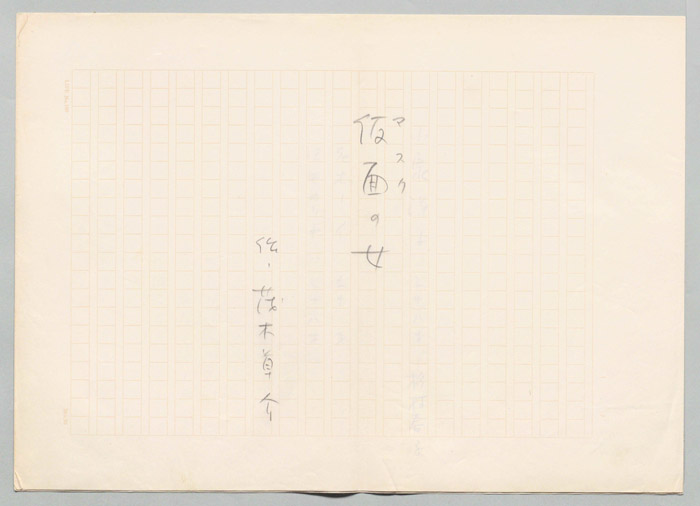 仮面の女
マスク
作・茂木草介